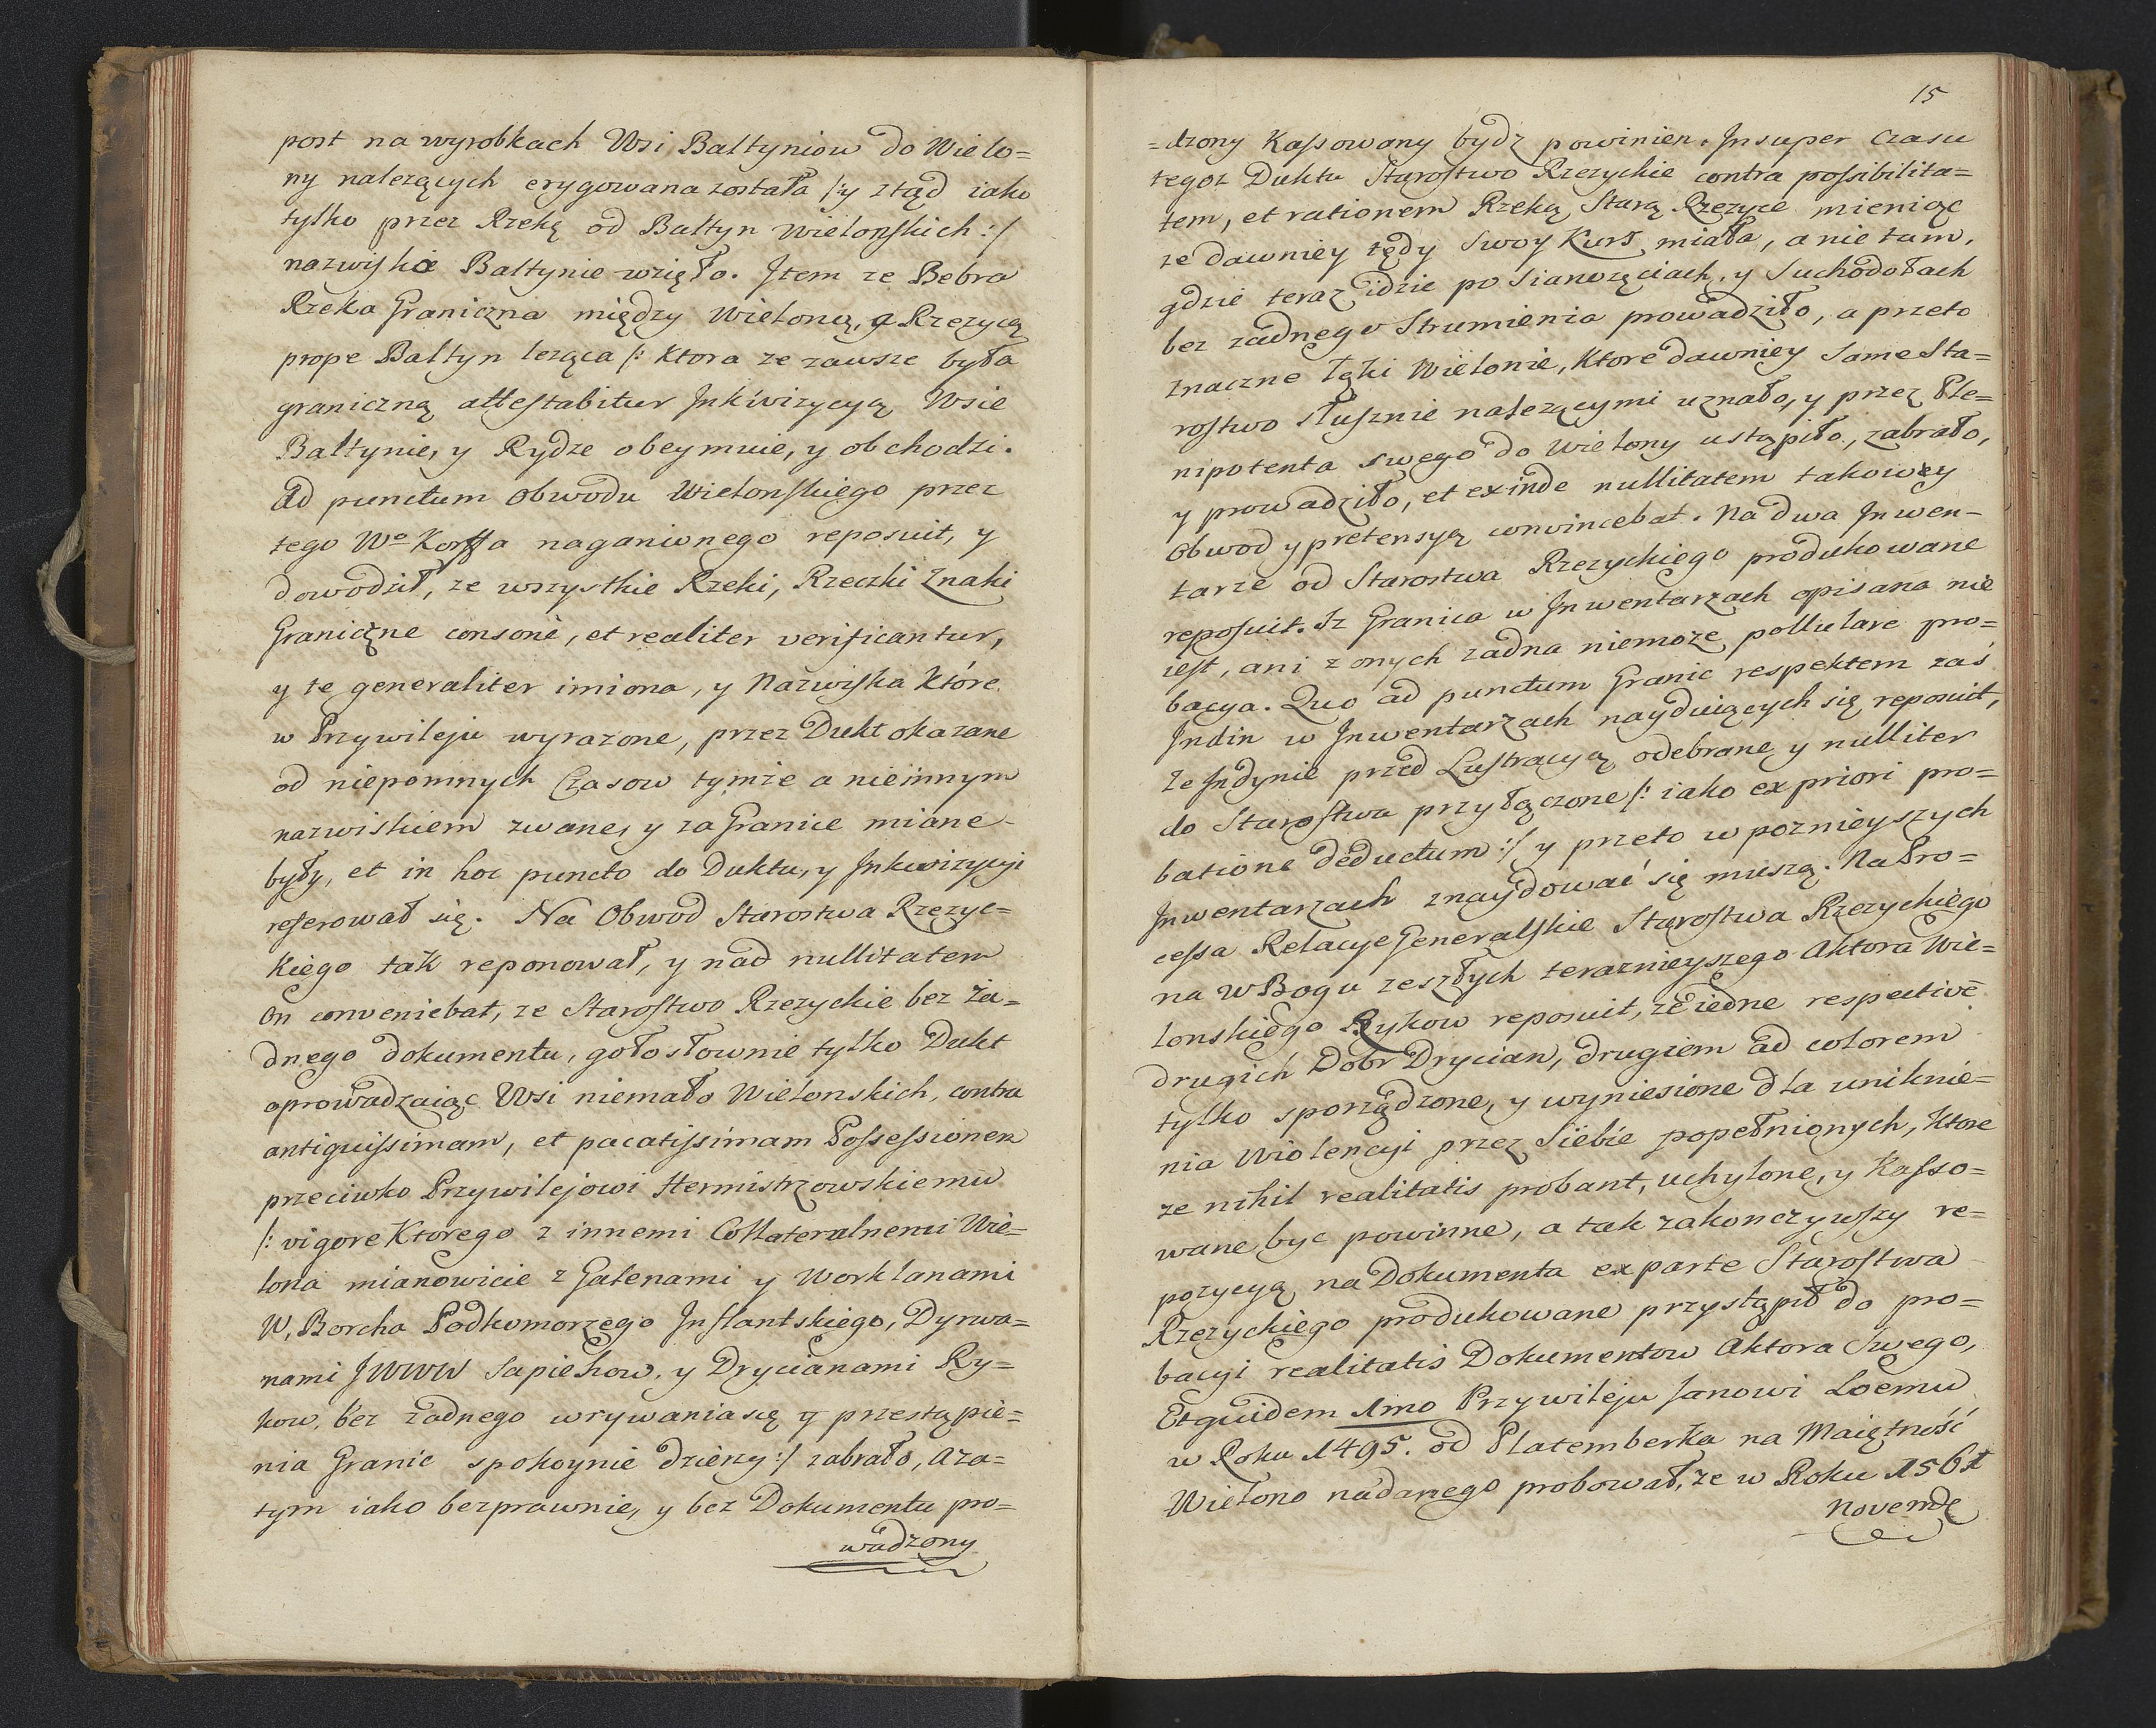 post na wyrobkach Wsi Baltyniow do Wielo=
ny nalezących erygowana została /: y ztąd iako
tylko przez Rzekę od Baltyn Wielonskich :/
nazwisko Baltynie wzięło. Jtem ze Bebra
Rzeka Graniczna między Wieloną, a Rzezycą
prope Baltyn leząca /: Ktora ze zawsze była
graniczną attestabitur Jnkwizycyą Wsie
Baltynie, y Rydze obeymuie, y obchodzi.
Ad punctum Obwodu Wielonskiego przez
tego Wo Korffa naganionego reposuit, y
dowodził, ze wszystkie Rzeki, Rzeczki Znaki
Graniczne consone, et realiter verificantur,
y te generaliter imiona, y Nazwiska Które
w Przywileju wyrazone, przez Dukt okazane
od niepomnych Czasow tymże a nieinnym
nazwiskiem zwane, y za Granice miane
były, et in hoc puncto do Duktu, y Jnkwizycyi
referował się. Na Obwod Starostwa Rzezyc=
kiego tak reponował, y nad nullitatem
On conveniebat, ze Starostwo Rzezyckie bez za=
dnego dokumentu, gołosłownie tylko Dukt
oprowadzaiąc Wsi niemało Wielonskich, contra
antiquissimam, et pacatissimam Possessionem
przeciwko Przywilejowi Hermistrzowskiemu
/: vigore Ktorego z innemi Collateralnemi Wie=
lona mianowicie z Galenami y Worklanami
W. Borcha Podkomorzego Jnflantskiego, Dyrwa=
nami JWWW Sapiehow, y Drycianami Ry=
kow, bez żadnego wrywania się y przestąpie=
nia Granic spokoynie dzierzy :/ zabrało, a za=
tym iako bezprawnie, y bez Dokumentu pro=
wadzony
15
=dzony Kassowany bydz powinien. Jnsuper Czasu
tegoz Duktu Starostwo Rzezyckie contra possibilita=
tem, et rationem Rzeką Starą Rzezyce mieniąc
ze dawniey tędy Swoy Kurs miała, a nie tam,
gdzie teraz idzie po Sianozęciach, y Suchodołach
bez zadnego Strumienia prowadziło, a przeto
znaczne Łąki Wielonie, Ktore dawniey same Sta=
rostwo słusznie nalezącymi uznało, y przez Ple=
nipotenta swego do Wielony ustąpiło, zabrało,
y prowadziło, et exinde nullitatem takowey
Obwod y pretensyą convincebat. Na dwa Jnwen=
tarze od Starostwa Rzezyckiego produkowane
reposuit. Iz Granica w Jnwentarzach opisana nie
iest, ani z onych zadna niemoze pollulare pro=
bacya. Quo ad punctum Granic respektem zaś
Jndin w Jnwentarzach nayduiących się reposuit,
Ze Jndynie przed Lustracyą odebrane y nulliter
do Starostwa przyłączone /: iako ex priori pro=
batione deductum :/ y przeto w poznieyszych
Jnwentarzach znaydować się muszą. Na Pro=
cessa Relacye Generalskie Starostwa Rzezyckiego
na w Bogu zeszłych terazniejszego Aktora Wie=
lonskiego Rykow reposuit, ze iedne respective
drugich Dobr Drycian, drugiem ad colorem
tylko sporządzone, y wyniesione dla uniknie=
nia Wiolencyi przez Siebie popełnionych, Ktore
ze nihil realitatis probant, uchylone, y Kasso=
wane byc powinne, a tak zakonczywszy re=
pozycyą na Dokumenta ex parte Starostwa
Rzezyckiego produkowane przystąpił do pro=
bacyi realitatis Dokumentow Aktora Swego,
Et quidem 1mo Przywileju Janowi Loemu
w Roku 1495. od Platemberka na Maiętność
Wielono nadanego probował, ze w Roku 1561
Novemdę